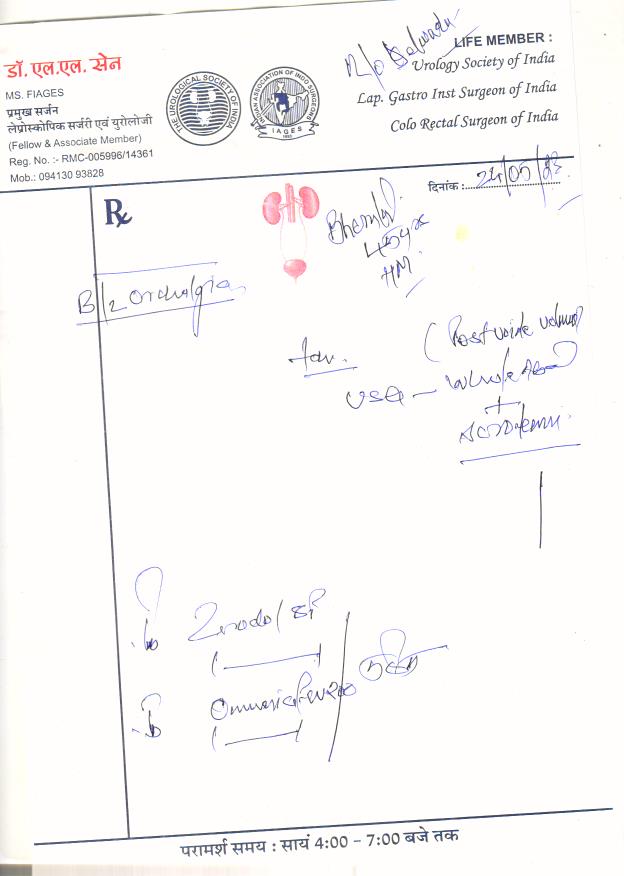 डॉ. एल.एल. सेन
MS. FIAGES
प्रमुख सर्जन
लेप्रोस्कोपिक सर्जरी एवं यूरोलोजी
(Fellow & Associate Member)
Reg. No. :- RMC-005996/14361
Mob.: 094130 93828
THE UROLOGICAL SOCIETY OF INDIA
INDIAN ASSOCIATION OF ENDO SURGEONS
IAGES
R/o
LIFE MEMBER :
Urology Society of India
Lap. Gastro Inst Surgeon of India
Colo Rectal Surgeon of India
दिनांक : 24/05/23
Rx
45yr
B/L Orchalgia
Adv.
(Post voide volume)
USG - Whole Abd
+
Scrotum
Zerodol
(
(
परामर्श समय : सायं 4:00 - 7:00 बजे तक